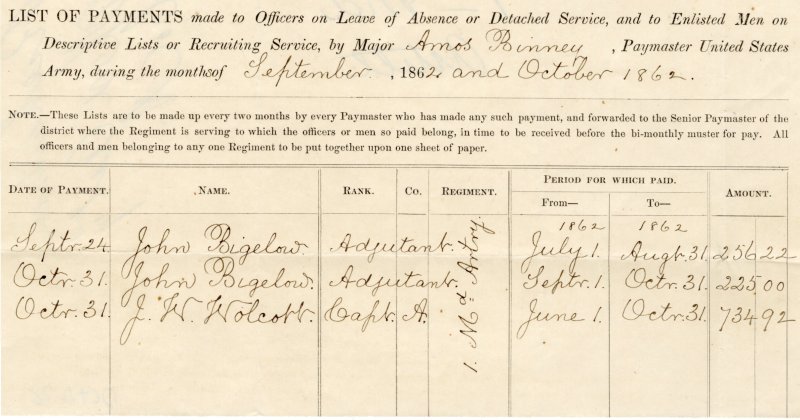 LIST OF PAYMENTS made to Officers on Leave of Absence or Detached Service, and to Enlisted Men on
Descriptive Lists or Recruiting Service, by Major Amos Binney, Paymaster United States
Army, during the months of September, 1862 and October 1862.
NOTE.—These Lists are to be made up every two months by every Paymaster who has made any such payment, and forwarded to the Senior Paymaster of the
district where the Regiment is serving to which the officers or men so paid belong, in time to be received before the bi-monthly muster for pay. All
officers and men belonging to any one Regiment to be put together upon one sheet of paper.
DATE OF PAYMENT. NAME. RANK. CO. REGIMENT. PERIOD FOR WHICH PAID. AMOUNT.
From— To—
1862 1862
Septr. 24 John Bigelow. Adjutant. July 1. Augt. 31. 256 22
Octr. 31. John Bigelow. Adjutant. Septr. 1. Octr. 31. 225 00
Octr. 31. J. W. Wolcott. Capt. A. June 1. Octr. 31. 734 92
1. Md Artry.